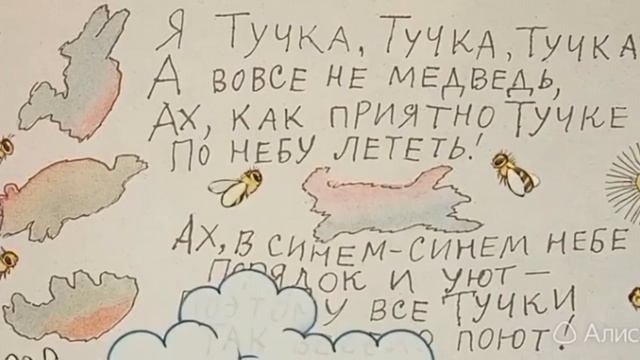 Я ТУЧКА, ТУЧКА, ТУЧКА
А ВОВСЕ НЕ МЕДВЕДЬ,
АХ, КАК ПРИЯТНО ТУЧКЕ
ПО НЕБУ ЛЕТЕТЬ!
АХ, В СИНЕМ-СИНЕМ НЕБЕ
ПОРЯДОК И УЮТ –
ВСЕ ТУЧКИ
ПОЮТ!
Алис